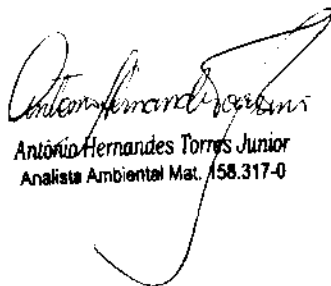 Antônio Hernandes Torres Junior
Analista Ambiental Mat. 158.317-0